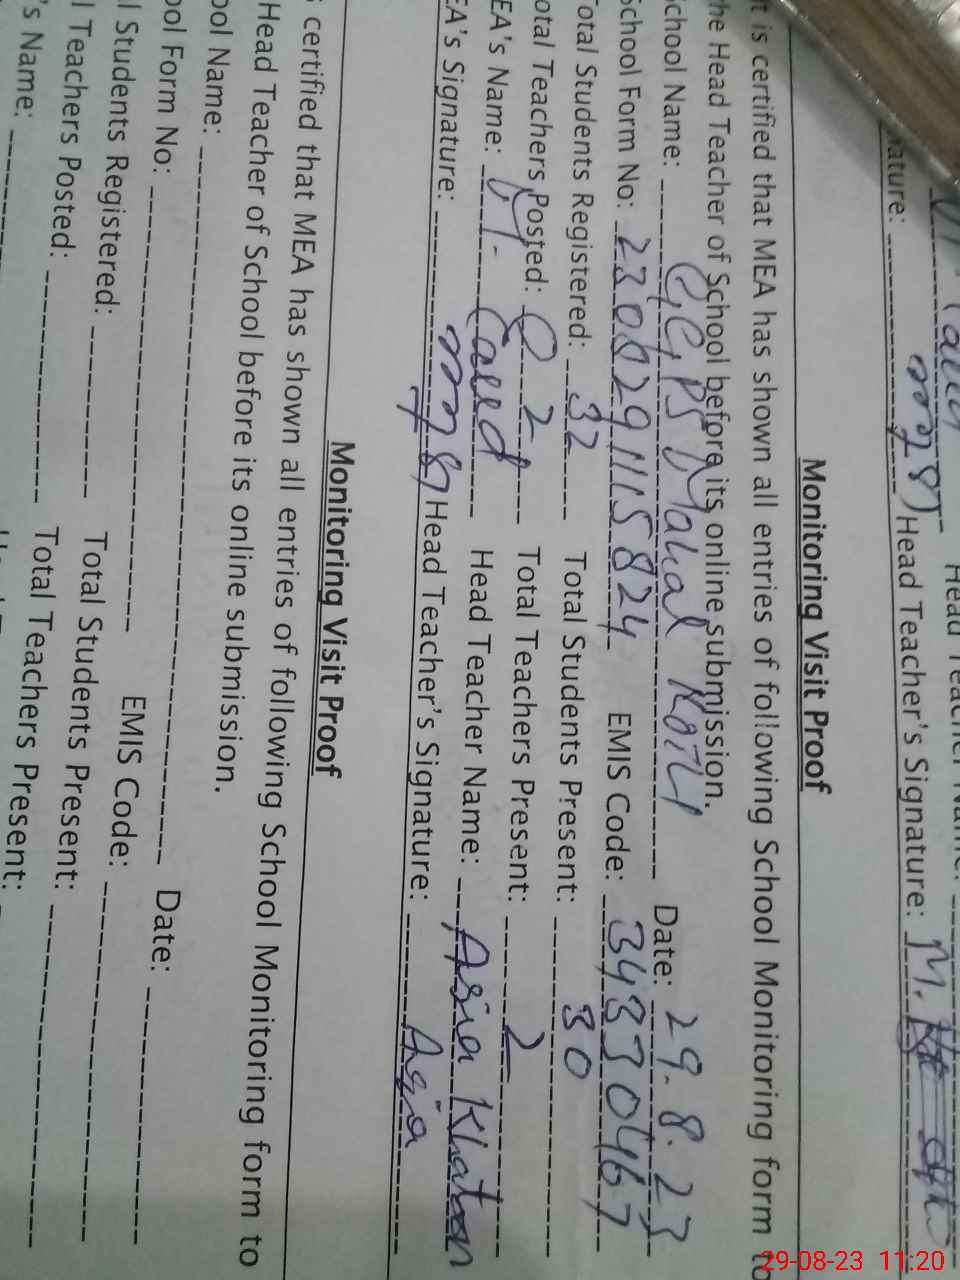 Head Teacher Name:
nature: Head Teacher's Signature: M.
Monitoring Visit Proof
It is certified that MEA has shown all entries of following School Monitoring form to
the Head Teacher of School before its online submission.
School Name: GGPS Mahal Kotli Date: 29.8.23
School Form No: 2308291115824 EMIS Code: 34330467
Total Students Registered: 32 Total Students Present: 30
Total Teachers Posted: 02 Total Teachers Present: 2
EA's Name: M. Saeed Head Teacher Name: Asia Khatoon
EA's Signature: Head Teacher's Signature: Asia
Monitoring Visit Proof
s certified that MEA has shown all entries of following School Monitoring form to
Head Teacher of School before its online submission.
ool Name: Date:
ool Form No: EMIS Code:
l Students Registered: Total Students Present:
l Teachers Posted: Total Teachers Present:
's Name:
29-08-23 11:20